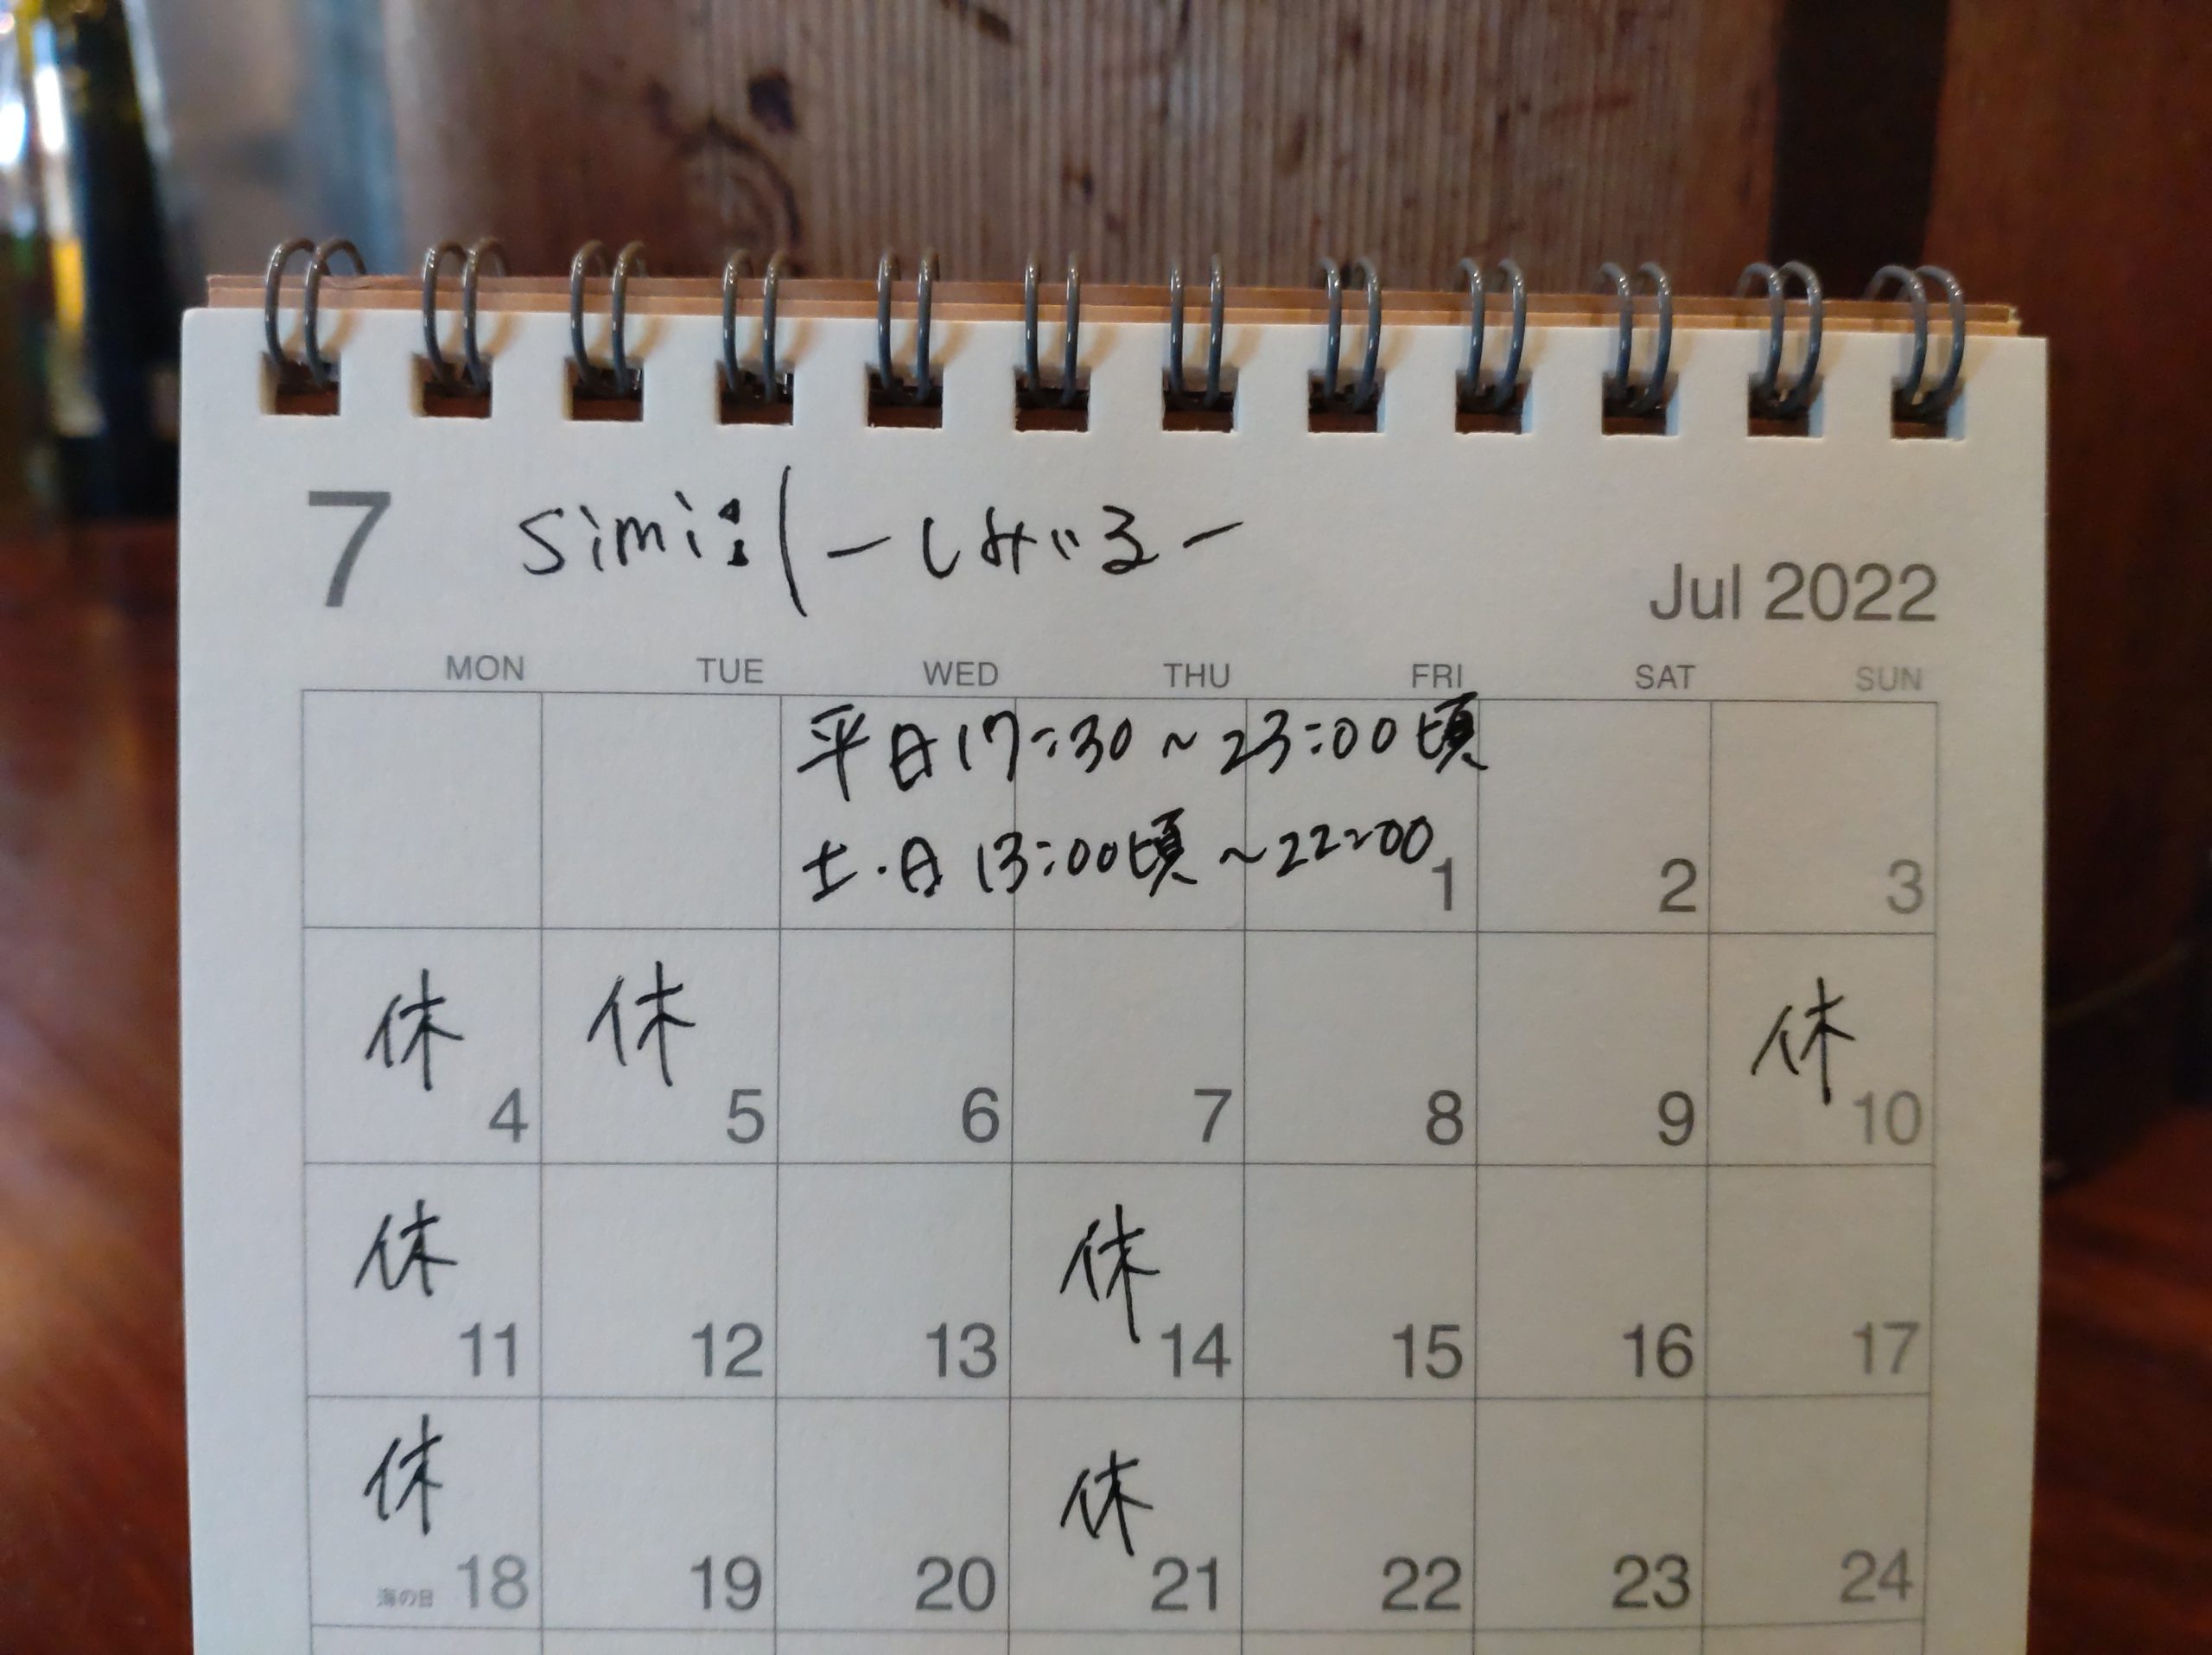 7 simi:l ーしみぃるー
Jul 2022
MON TUE WED THU FRI SAT SUN
平日17:30~23:00頃
土・日 13:00頃~22:00
1 2 3
休 休 休
4 5 6 7 8 9 10
休 休
11 12 13 14 15 16 17
休 休
海の日 18 19 20 21 22 23 24